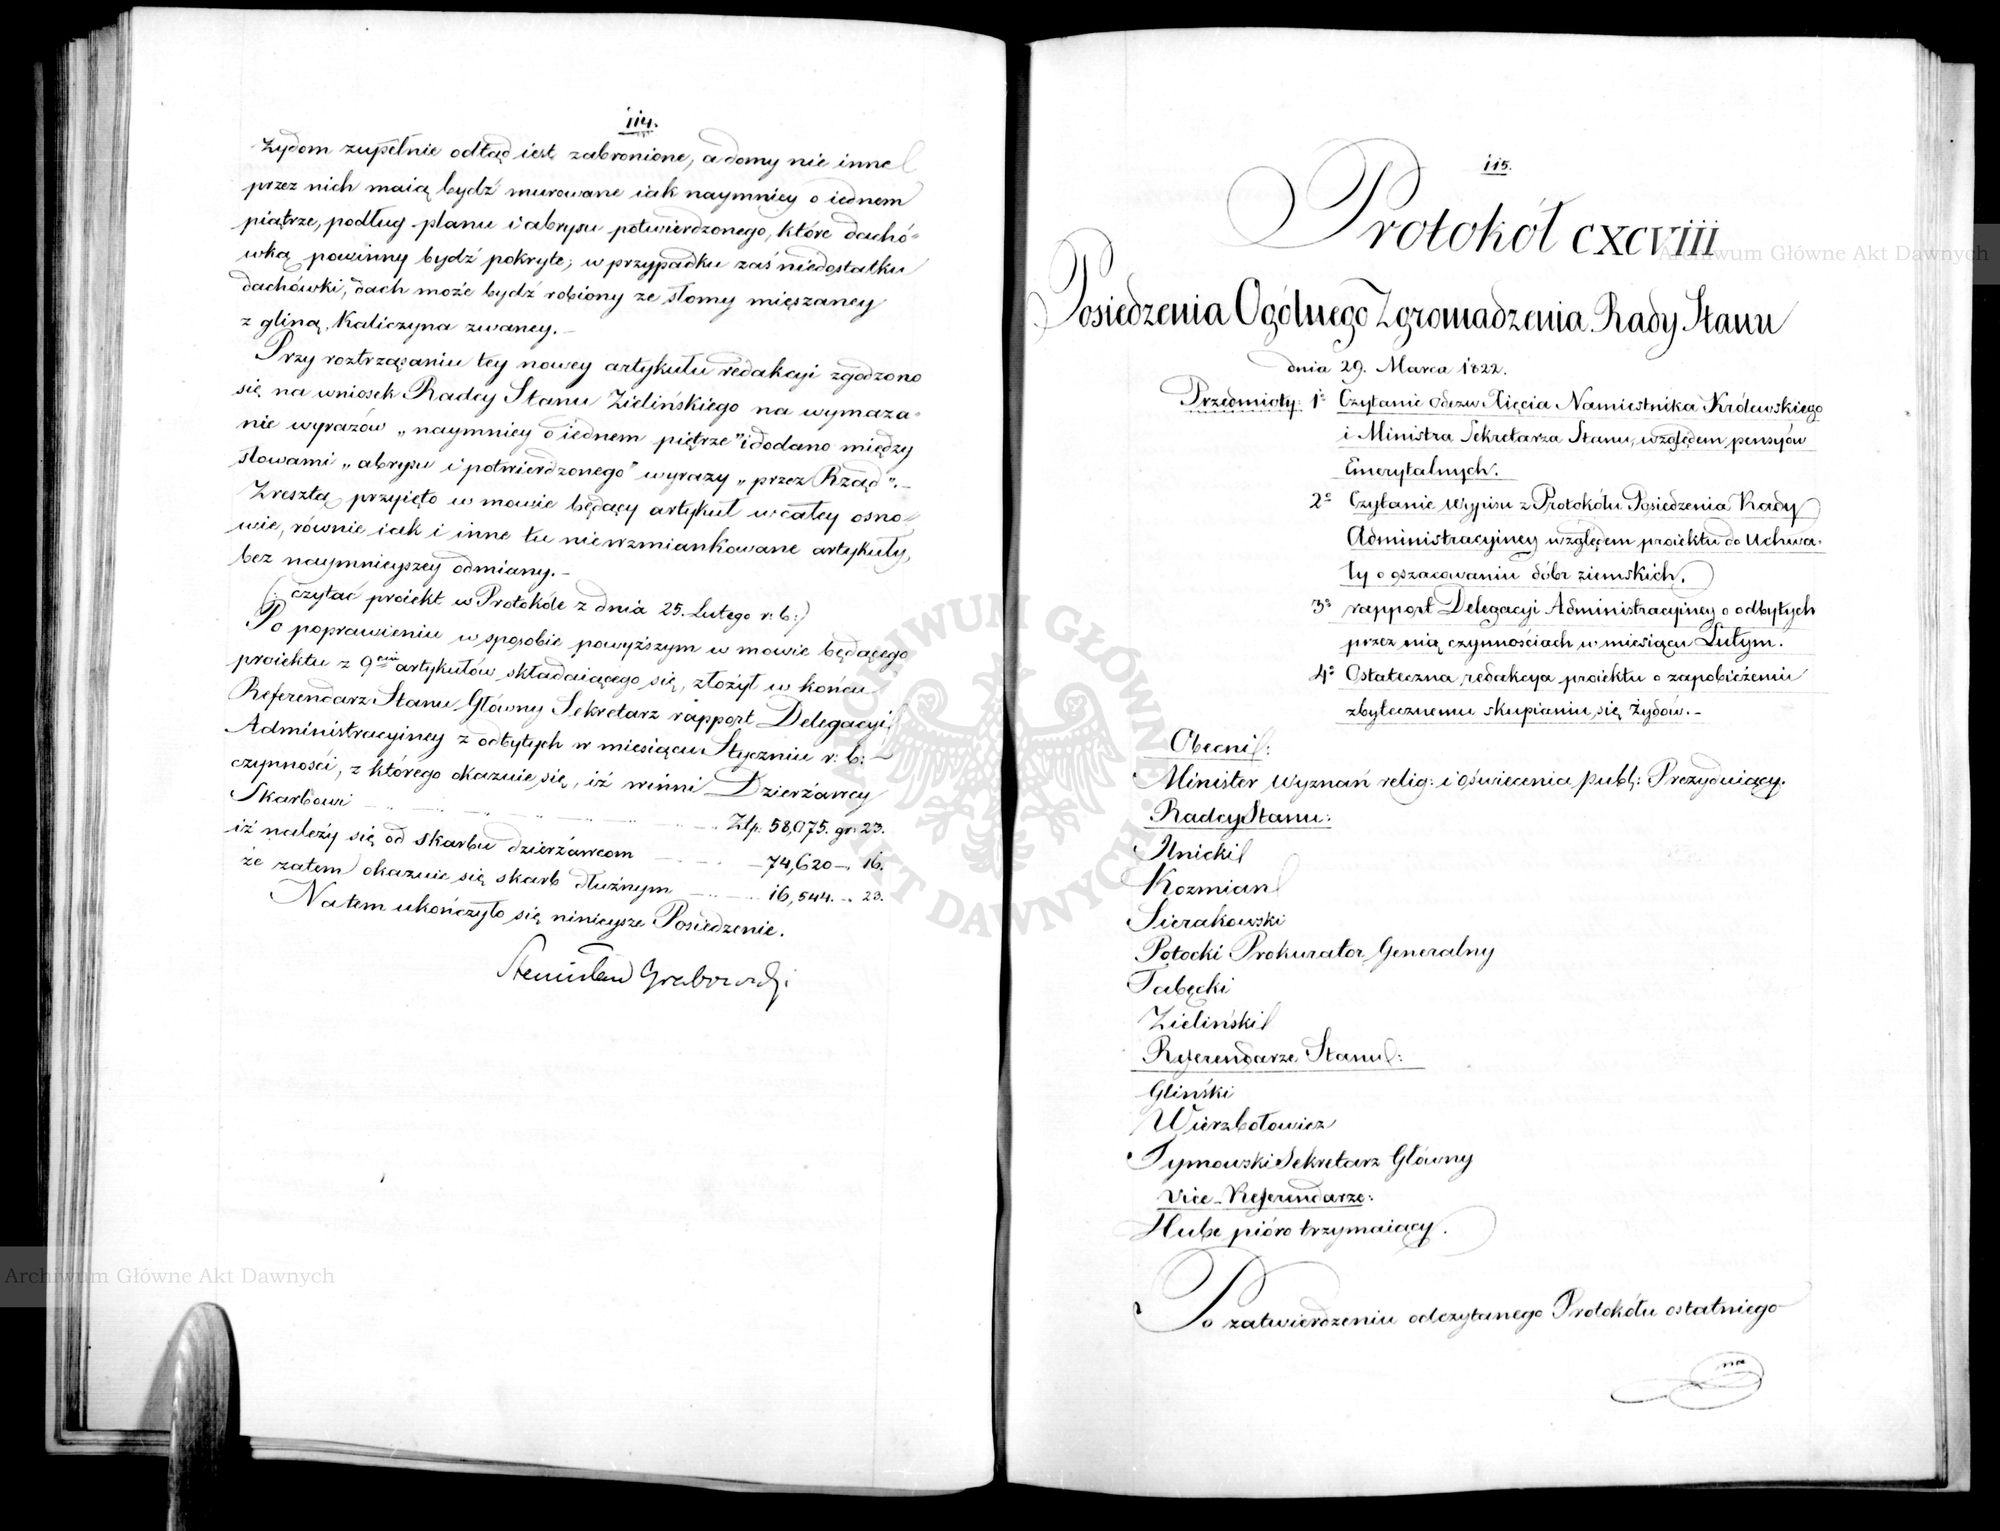 114.
Żydom zupełnie odtąd iest zabronione, a domy nie inne
przez nich maią bydź murowane iak naymniey o iednem
piątrze, podług planu i abrysu potwierdzonego, które dachó-
wką powinny bydź pokryte; w przypadku zaś niedostatku
dachówki, dach może bydź robiony ze słomy mięszaney
z gliną, Kaliczyna zwaney.–
Przy roztrząsaniu tey nowey artykułu redakcyi zgodzono
się na wniosek Radcy Stanu Zielińskiego na wymaza-
nie wyrazów „naymniey o iednem piętrze" i dodano między
słowami „abrysu i potwierdzonego" wyrazy „przez Rząd".–
Zresztą przyięto w mowie będący artykuł w całey osno-
wie, równie iak i inne tu niewzmiankowane artykuły,
bez naymnieyszey odmiany.–
(: czytać proiekt w Protokóle z dnia 25. Lutego r: b:)
Po poprawieniu w sposobie powyższym w mowie będącego
proiektu z 9ciu artykułów składaiącego się, złożył w końcu
Referendarz Stanu Główny Sekretarz rapport Delegacyi
Administracyiney z odbytych w miesiącu Styczniu r: b:
czynności, z którego okazuie się, iż winni Dzierżawcy
Skarbowi Złp: 58,075. gr: 23.
iż należy się od skarbu dzierżawcom 74,620 –. 16.
że zatem okazuie się skarb dłużnym 16,544. –. 23.
Na tem ukończyło się ninieysze Posiedzenie.
Stanisław Grabowski
115.
Protokół CXCVIII
Posiedzenia Ogólnego Zgromadzenia Rady Stanu
dnia 29. Marca 1822.
Przedmioty: 1o Czytanie odezw Xięcia Namiestnika Królewskiego
i Ministra Sekretarza Stanu, względem pensyów
Emerytalnych.
2o Czytanie Wypisu z Protokółu Posiedzenia Rady
Administracyiney względem proiektu do Uchwa-
ły o oszacowaniu dóbr ziemskich.
3o rapport Delegacyi Administracyiney o odbytych
przez nią czynnościach w miesiącu Lutym.
4o Ostateczna redakcya proiektu o zapobieżeniu
zbytecznemu skupianiu się Żydów.–
Obecni:
Minister Wyznań relig: i Oświecenia publ: Prezyduiący.
Radcy Stanu:
Unicki
Kozmian
Sierakowski
Potocki Prokurator Generalny
Tabęcki
Zieliński
Referendarze Stanu:
Gliński
Wierzbołowicz
Tymowski Sekretarz Główny
Vice-Referendarze:
Hube pióro trzymaiący.
Po zatwierdzeniu odczytanego Protokółu ostatniego
na
Archiwum Główne Akt Dawnych
Archiwum Główne Akt Dawnych
ARCHIWUM GŁÓWNE AKT DAWNYCH